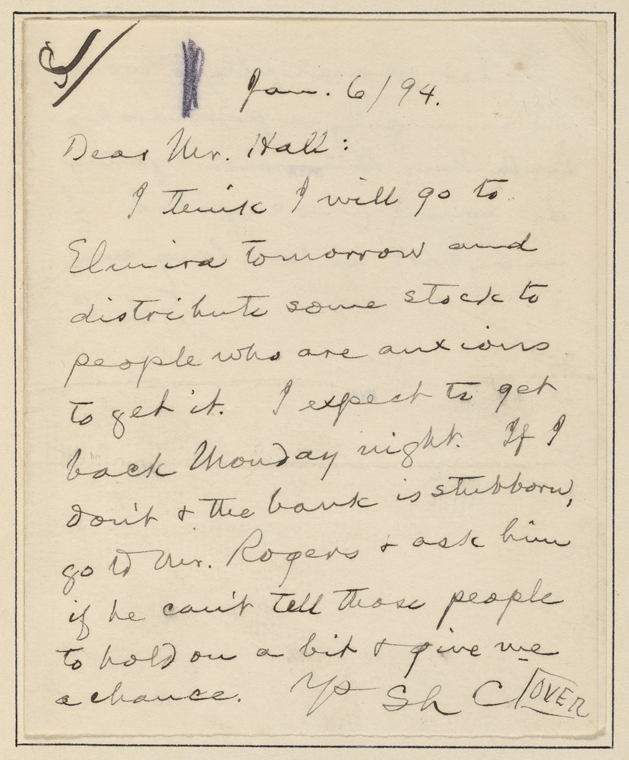 Jan. 6/94.
Dear Mr. Hall:
I think I will go to
Elmira tomorrow and
distribute some stock to
people who are anxious
to get it. I expect to get
back Monday night. If I
don't & the bank is stubborn,
go to Mr. Rogers & ask him
if he can't tell those people
to hold on a bit & give me
a chance. Ys SLC
OVER